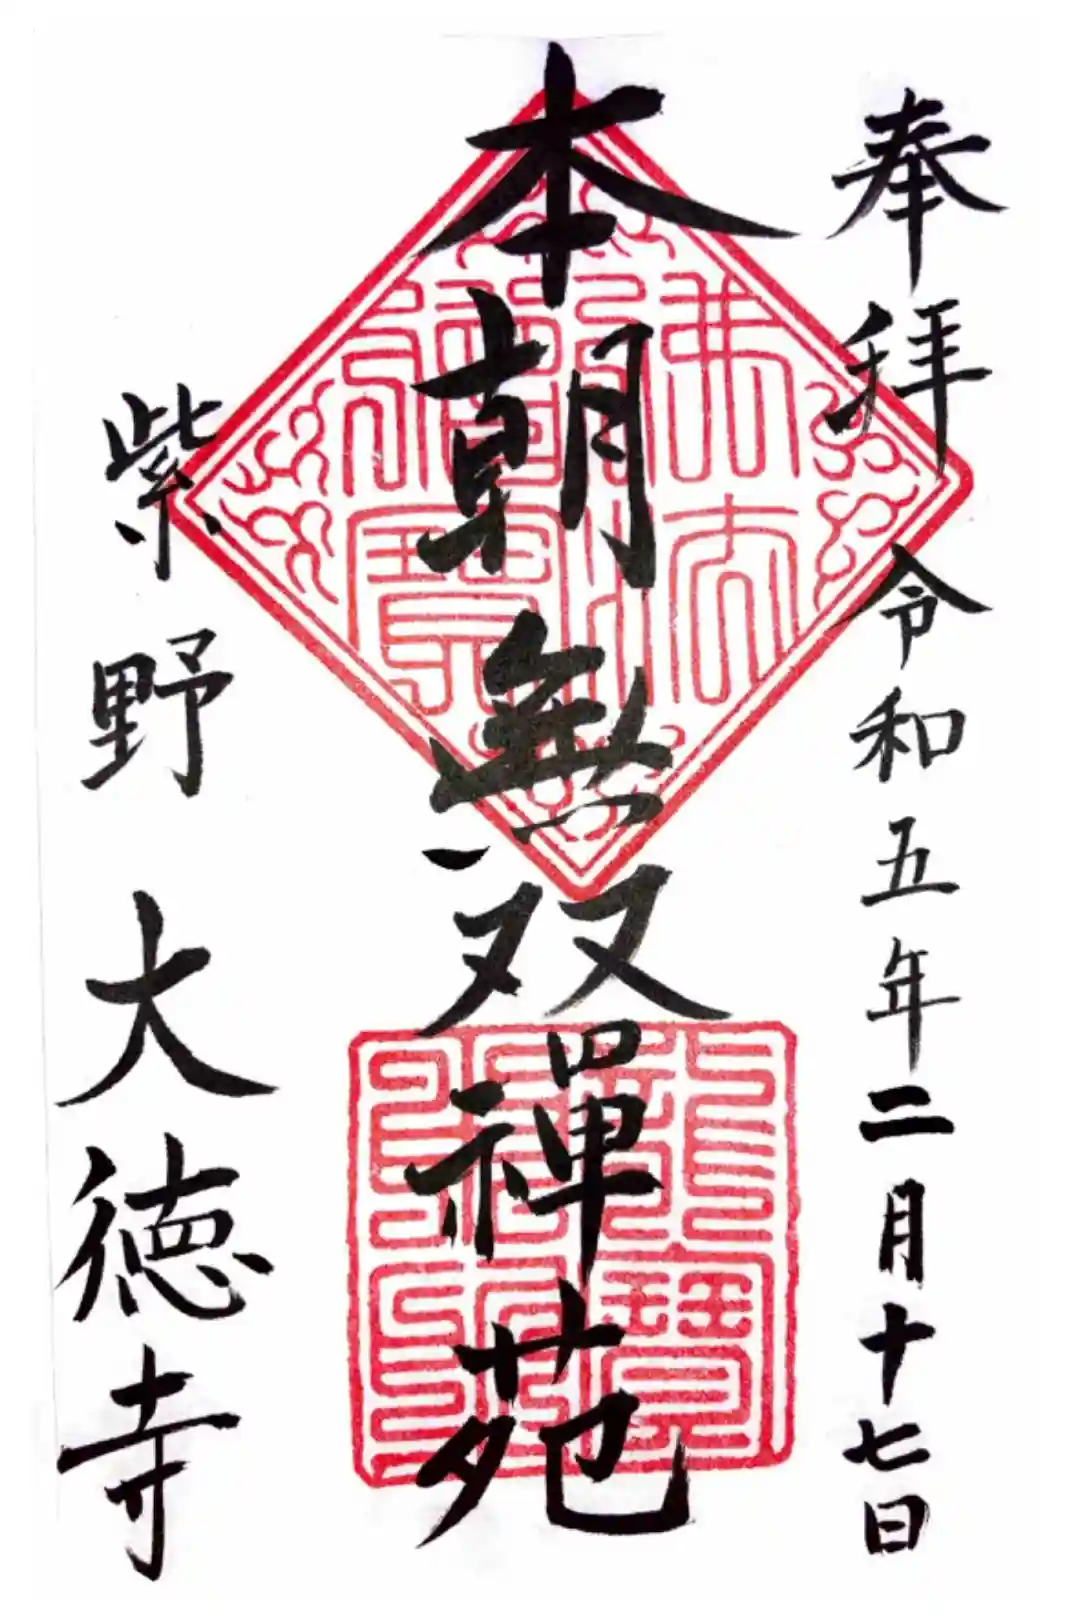 奉拝 令和五年二月十七日
本朝無双禅苑
紫野 大徳寺